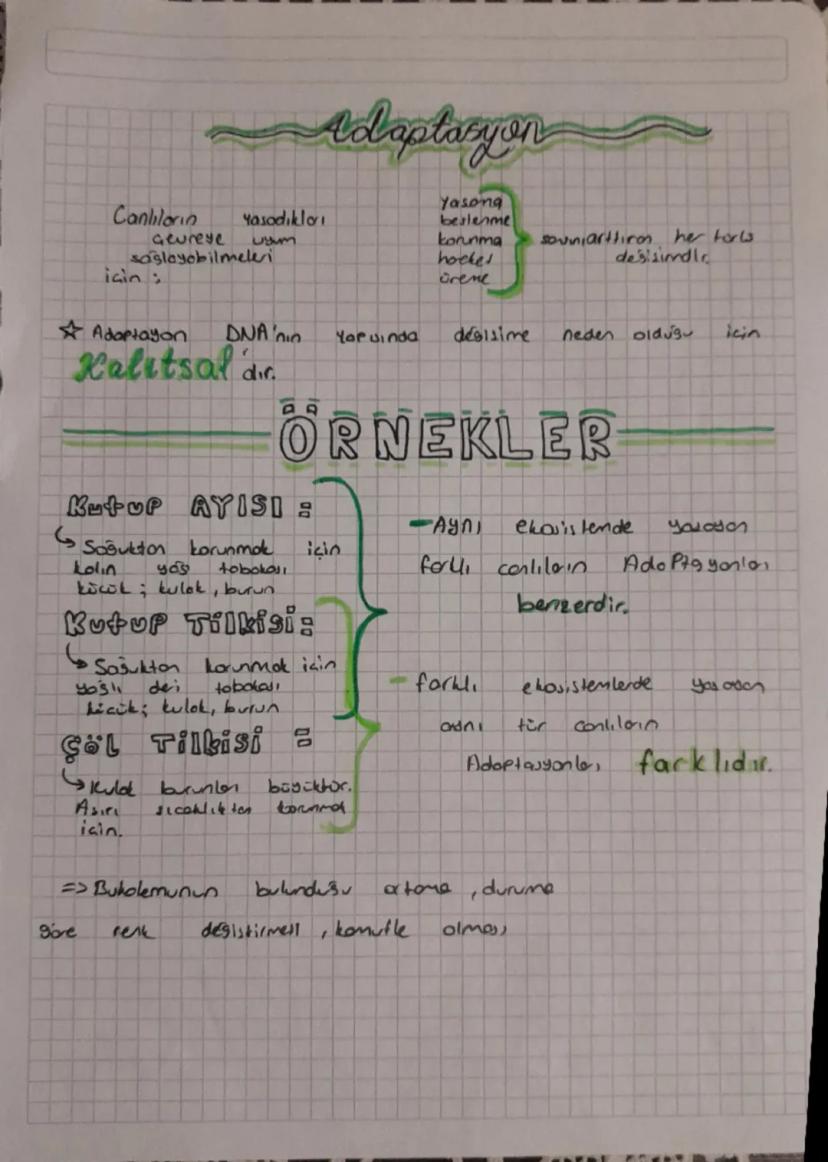 Adaptasyon
Canlıların yaşadıkları
çevreye uyum
sağlayabilmeleri
için :
yaşama
beslenme
korunma
üreme
her türlü
değişimdir.
☆ Adaptasyon DNA'nın yapısında değişime neden olduğu için
Kalıtsal'dır.
ÖRNEKLER
Kutup AYISI :
↳ Soğuktan korunmak için
kalın yağ tabakası
küçük ; kulak, burun
Kutup Tilkisi :
↳ Soğuktan korunmak için
yağlı deri tabakası
küçük; kulak, burun
ÇÖL Tilkisi :
↳ Kulak burunları büyüktür.
Aşırı sıcaklıktan korunmak
için.
- Aynı ekosistemde yaşayan
farklı canlıların Adaptasyonları
benzerdir.
- farklı ekosistemlerde yaşayan
aynı tür canlıların
Adaptasyonları farklıdır.
=> Bukalemunun bulunduğu ortama, duruma
göre renk değiştirmesi, kamufle olması